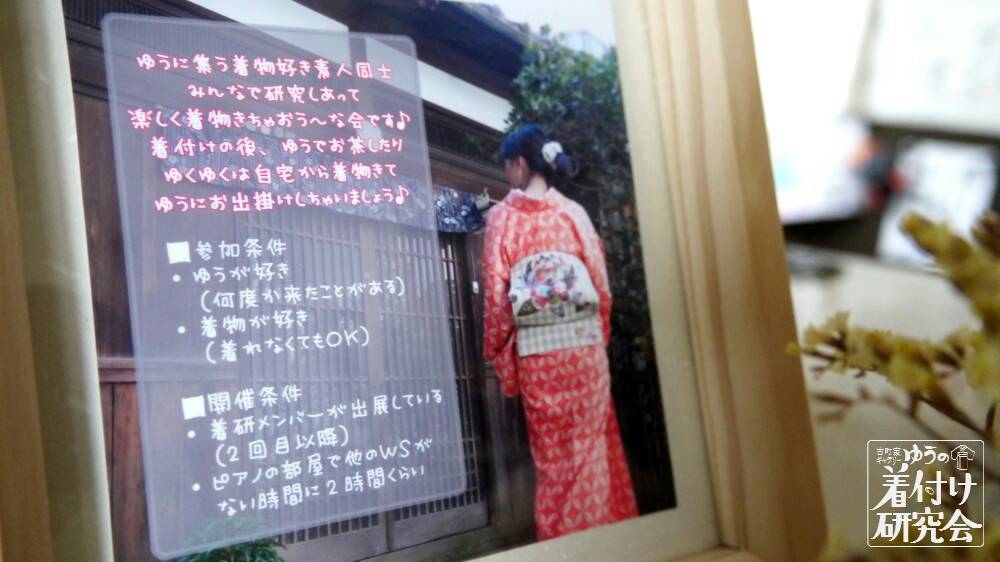 ゆうに集う着物好き素人同士
みんなで研究しあって
楽しく着物きちゃおう～な会です♪
着付けの後、ゆうでお茶したり
ゆくゆくは自宅から着物きて
ゆうにお出掛けしちゃいましょう♪
■参加条件
• ゆうが好き
(何度か来たことがある)
• 着物が好き
(着れなくてもOK)
■開催条件
• 着研メンバーが出展している
(2回目以降)
• ピアノの部屋で他のWSが
ない時間に2時間くらい
古町家
ギャラリー
ゆうの
着付け
研究会